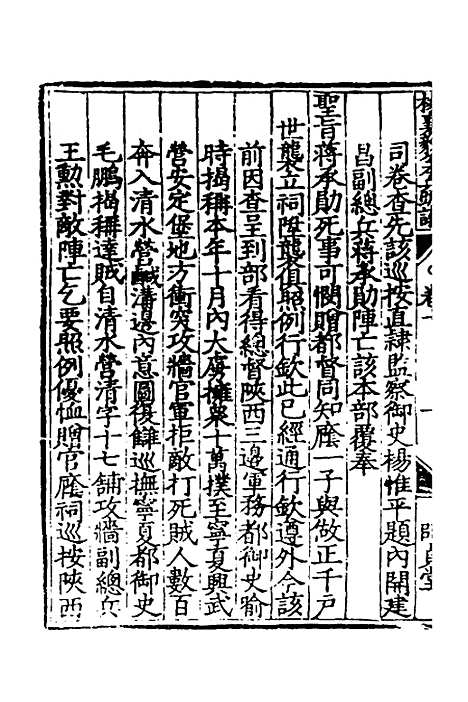 司卷查先該巡按直隸監察御史楊惟平題內開建
昌副總兵蔣承勛陣亡該本部覆奉
聖旨蔣承勛死事可憫贈都督同知廕一子與做正千戶
世襲立祠陞襲俱照例行欽此已經通行欽遵外今該
前因查呈到部看得總督陝西三邊軍務都御史喻
時揭稱本年十月內大虜擁眾十萬撲至寧夏興武
營安定堡地方衝突攻牆官軍拒敵打死賊人數百
奔入清水營鹹溝邊內意圖復讎巡撫寧夏都御史
毛鵬揭稱達賊自清水營清字十七鋪攻牆副總兵
王勳對敵陣亡乞要照例優恤贈官廕祠巡按陝西